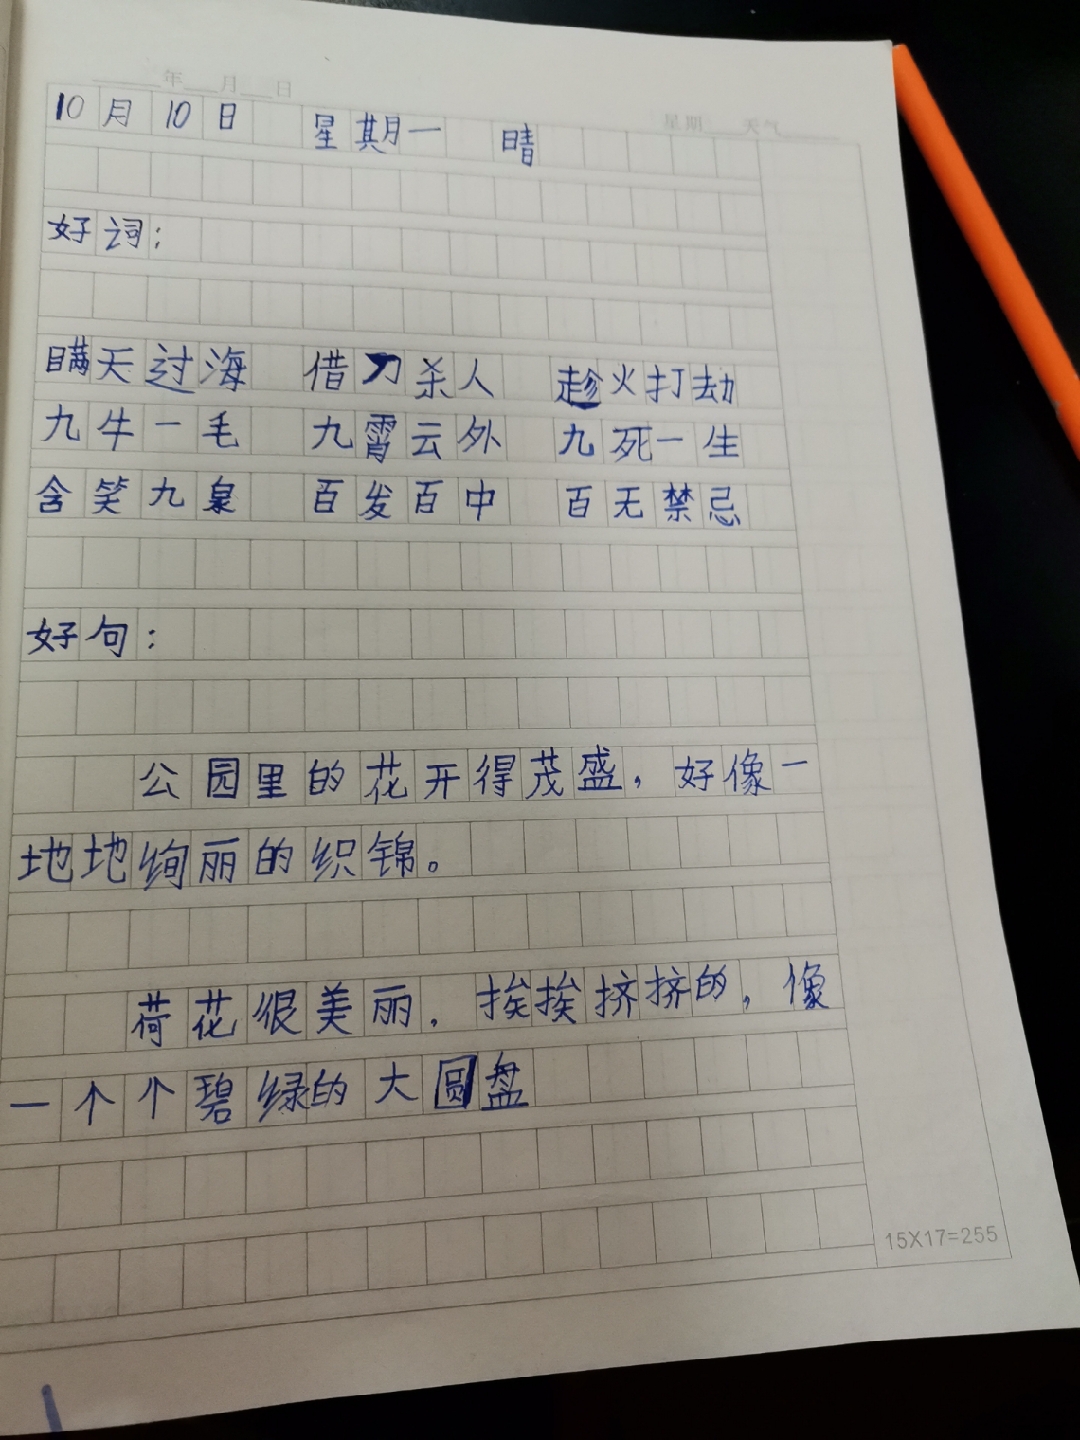 ____年__月__日
星期____天气____
10月10日 星期一 晴
好词:
瞒天过海 借刀杀人 趁火打劫
九牛一毛 九霄云外 九死一生
含笑九泉 百发百中 百无禁忌
好句:
公园里的花开得茂盛,好像一
地地绚丽的织锦。
荷花很美丽.挨挨挤挤的,像
一个个碧绿的大圆盘
15X17=255